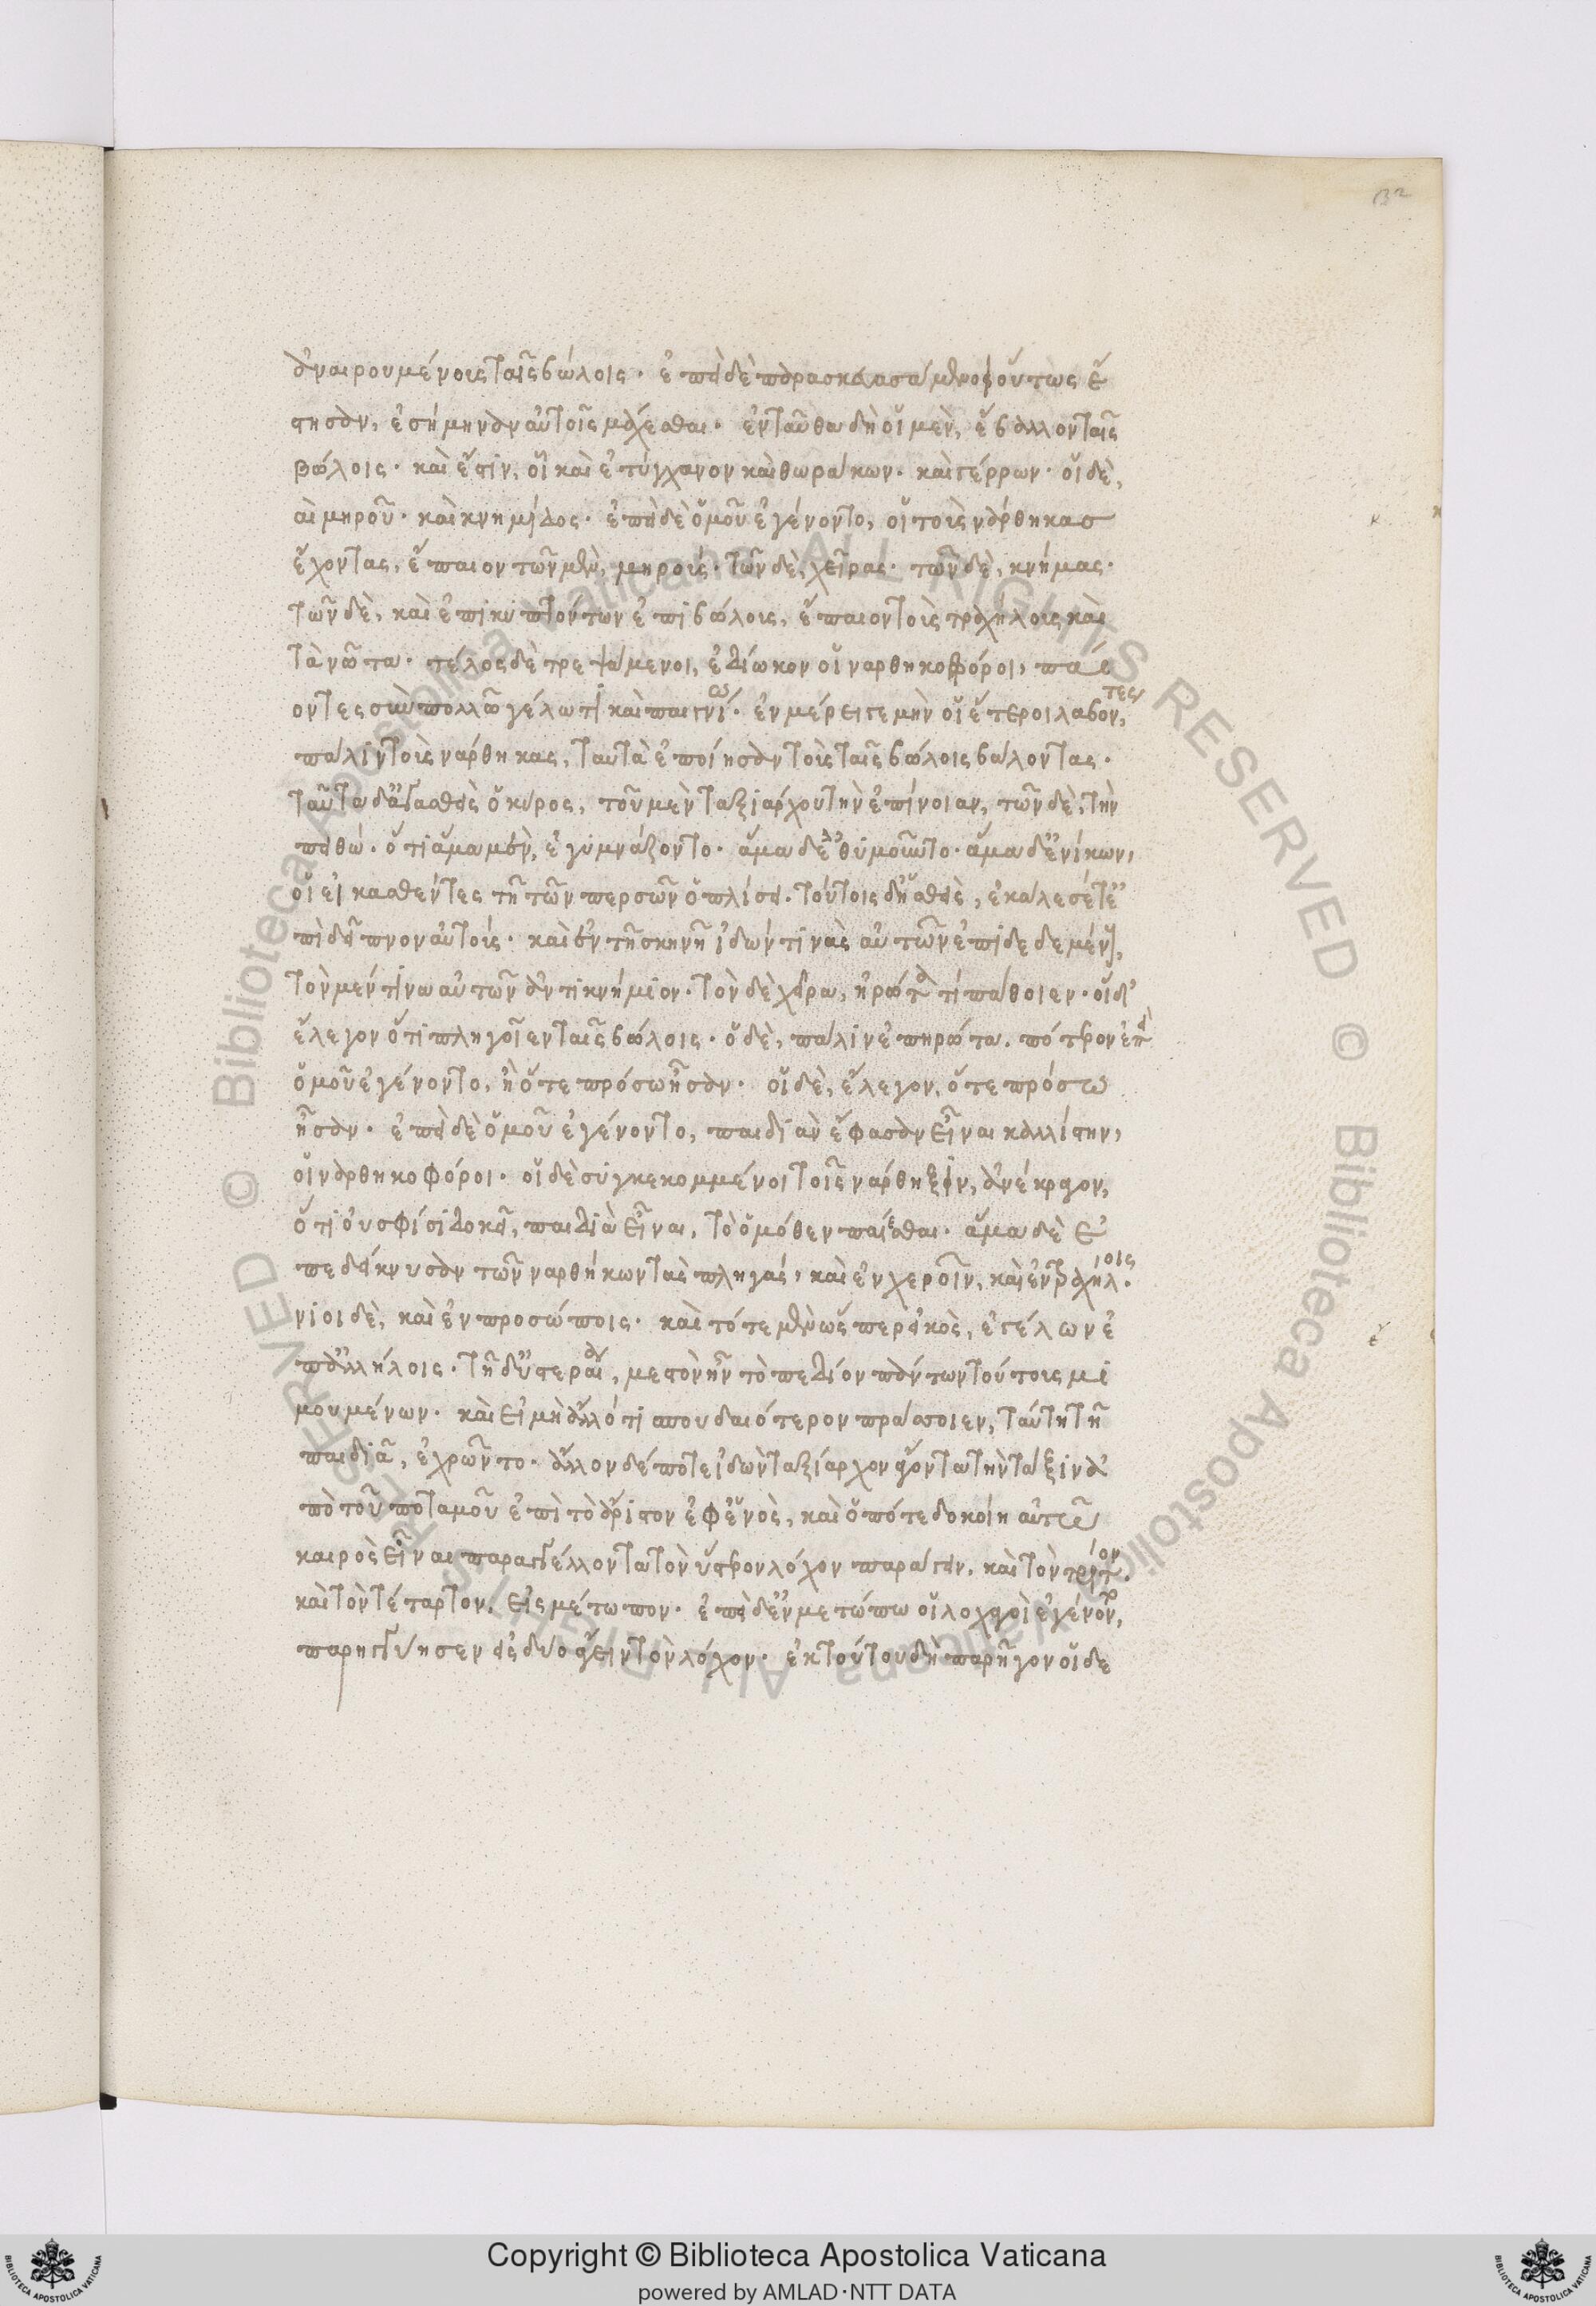 132
ἀναιρουμένοις ταῖς βώλοις· ἐπεὶ δὲ παρασκευασάμενοι οὕτως ἔ
στησαν, ἐσήμηναν αὐτοῖς μάχεσθαι· ἐνταῦθα δὴ οἱ μὲν, ἔβαλλον ταῖς
βώλοις· καὶ ἔστιν, οἳ καὶ ἐτύγχανον καὶ θωράκων· καὶ γέρρων· οἱ δὲ,
καὶ μηροῦ· καὶ κνημίδος· ἐπεὶ δὲ ὁμοῦ ἐγένοντο, οἱ τοὺς νάρθηκασ
ἔχοντας, ἔπαιον τῶν μὲν, μηρούς· τῶν δὲ, χεῖρας· τῶν δὲ, κνήμας·
τῶν δὲ, καὶ ἐπικυπτόντων ἐπὶ βώλοις, ἔπαιον τοὺς τραχήλους καὶ
τὰ νῶτα· τέλος δὲ τρεψάμενοι, ἐδίωκον οἱ ναρθηκοφόροι, παί
οντες σὺν πολλῷ γέλωτι καὶ παιγνίᾳ· ἐν μέρει γε μὴν οἱ ἕτεροι λαβόντες
πάλιν τοὺς νάρθηκας, ταυτὰ ἐποίησαν τοὺς ταῖς βώλοις βάλοντας·
ταῦτα δ' ἀγασθεὶς ὁ κύρος, τοῦ μὲν ταξιάρχου τὴν ἐπίνοιαν, τῶν δὲ, τὴν
πειθώ· ὅτι ἅμα μὲν, ἐγυμνάζοντο· ἅμα δὲ εὐθυμοῦντο· ἅμα δ' ἐνίκων,
οἱ εἰκασθέντες τῇ τῶν περσῶν ὁπλίσει· τούτοις δὴ ἡσθεὶς, ἐκάλεσέ τε ἐ
πὶ δεῖπνον αὐτούς· καὶ ἐν τῇ σκηνῇ ἰδών τινὰς αὐτῶν ἐπιδεδεμένους,
τὸν μέν τινα αὐτῶν ἀντικνήμιον· τὸν δὲ χεῖρα, ἠρώτα τί πάθοιεν· οἱ δ'
ἔλεγον ὅτι πληγοῖεν ταῖς βώλοις· ὁ δὲ, πάλιν ἐπηρώτα· πότερον ἐπεὶ
ὁμοῦ ἐγένοντο, ἢ ὅτε πρόσω ἦσαν· οἱ δὲ, ἔλεγον, ὅτε πρόσω
ἦσαν· ἐπεὶ δὲ ὁμοῦ ἐγένοντο, παιδιὰν ἔφασαν εἶναι καλλίστην,
οἱ ναρθηκοφόροι· οἱ δὲ συγκεκομμένοι τοῖς νάρθηξιν, ἀνέκραγον,
ὅτι οὐ σφίσι δοκεῖ, παιδιὰ εἶναι, τὸ ὁμόθεν παίεσθαι· ἅμα δὲ ἐ
πεδείκνυσαν τῶν ναρθήκων τὰς πληγάς, καὶ ἐν χερσὶν, καὶ ἐν τραχήλοις·
ἔνιοι δὲ, καὶ ἐν προσώποις· καὶ τότε μὲν ὥσπερ εἰκὸς, ἐγέλων ἐ
π' ἀλλήλοις· τῇ δ' ὑστεραίᾳ, μεστὸν ἦν τὸ πεδίον πάντων τούτους μι
μουμένων· καὶ εἰ μὴ ἄλλό τι σπουδαιότερον πράσσοιεν, ταύτῃ τῇ
παιδιᾷ, ἐχρῶντο· ἄλλον δέ ποτε ἰδὼν ταξίαρχον ἄγοντα τὴν τάξιν ἀ
πὸ τοῦ ποταμοῦ ἐπὶ τὸ ἄριστον ἐφ' ἑνὸς, καὶ ὁπότε δοκοίη αὐτῷ
καιρὸς εἶναι παραγγέλλοντα τὸν ὕστερον λόχον παράγειν· καὶ τὸν τρίτον·
καὶ τὸν τέταρτον, εἰς μέτωπον· ἐπεὶ δ' ἐν μετώπῳ οἱ λοχαγοὶ ἐγένοντο,
παρηγγύησεν εἰς δύο ἄγειν τὸν λόχον· ἐκ τούτου δὴ παρῆγον οἱ δε
© Biblioteca Apostolica Vaticana ALL RIGHTS RESERVED
Copyright © Biblioteca Apostolica Vaticana
powered by AMLAD·NTT DATA